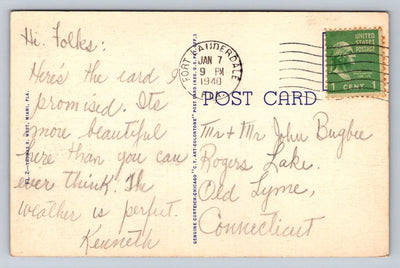 Hi. Folks:
Here's the card I
promised. Its
more beautiful
here than you can
ever think. The
weather is perfect.
Kenneth
FORT LAUDERDALE
JAN 7
9 PM
1940
FLA.
UNITED
STATES
POSTAGE
1 CENT 1
POST CARD
Mr + Mr John Bugbee
Rogers Lake.
Old Lyme,
Connecticut
GENUINE CURTEICH-CHICAGO "C.T. ART-COLORTONE" POST CARD (REG. U.S. PAT. OFF.)
WEST, MIAMI, FLA.